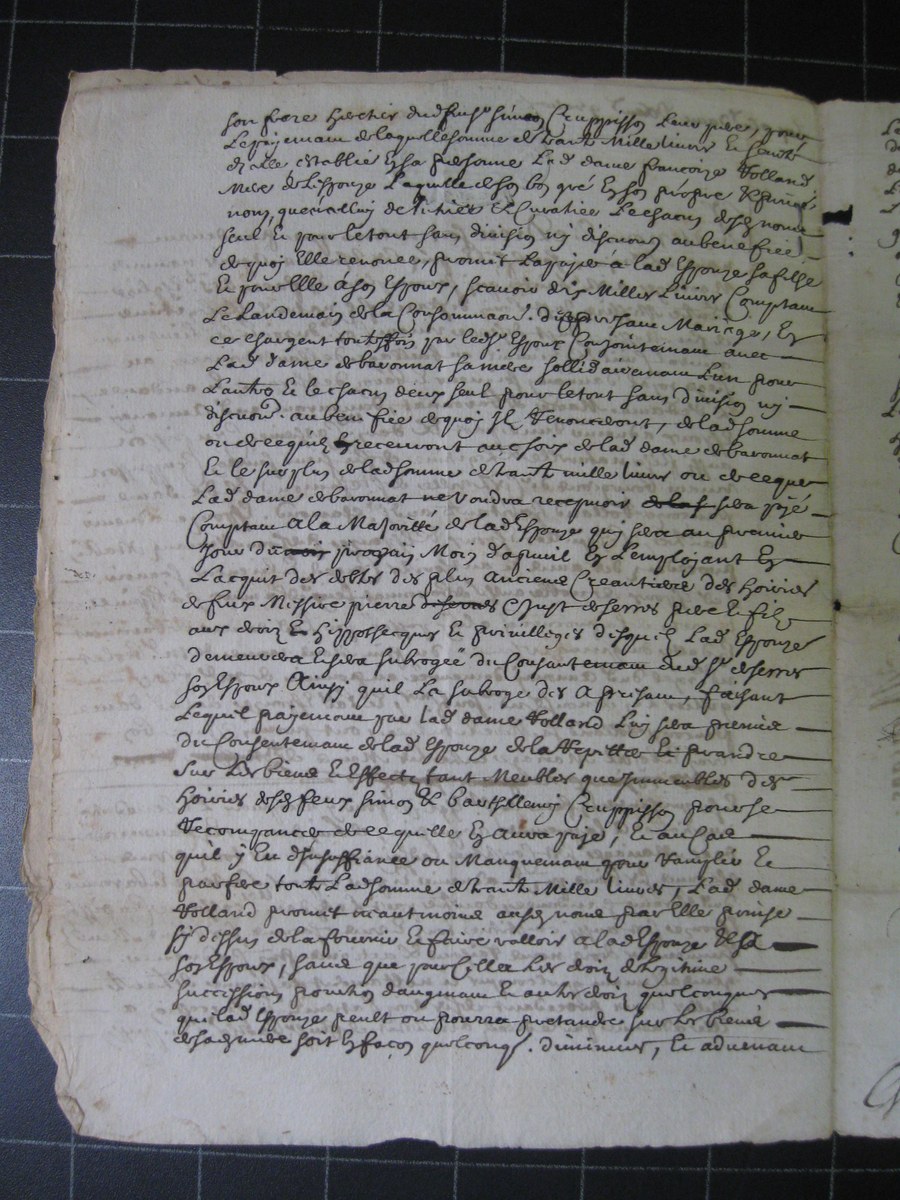 son frere heretier dud feu sr simon Cruppisson leur pere, pour
Le payemant de laquelle somme de trante Mille livres En Cauze
establie En sa personne Lad dame francoize Rolland
Mere de L'espouze Laquelle de son bon gré En son propre &
nom, qu'en celluy de tutrice & Curatrice Le chacun desd noms
seul Et pour le tout sans division ny discution au benefice
de quoy Elle renonce, promet La payer a lad Espouze sa fille
Et pour Elle á son Espoux, scavoir dix Milles Livres Comptant
Le Landemain de la Consommaon. du present Mariage, En
ce chargent touteffois par led sr Espoux Conjointemant avec
Lad dame de baronnat sa mere sollidairemant L'un pour
L'autre Et le chacun d'eux seul pour le tout sans division ny
discuon. au benefice de quoy Ilz Renonceront, de lad somme
ou de ce quilz En recevront au choix de lad dame de baronnat
Et le surplus de lad somme de trante mille livres ou de ce que
Lad dame de baronnat ne voudra recepvoir sera payé
Comptant A la Majorité de lad Espouze quy sera au premier
Jour du prochain Mois d'apvril En L'employant En
L'acquit des debtes des plus Anciens Creantiers des hoiries
de feus Messire pierre & Just de serres pere et filz
aux droitz Et hippothecques Et privilleges desquelz Lad Espouze
demeurera Et sera subrogée du Consantemant dud sr de serres
son Espoux Ainsy quil La subroge des A presant, faisant
Lequel payemant par lad dame Rolland Luy sera permis
du Consentemant de lad Espouze de la Repetter Et prandre
sur Les biens Et Effectz tant Meubles que Immeubles des
hoiries desd feus simon & barthellemy Cruppisson pour se
Recompancer de ce quelle En aura payé, Et au Cas
quil y Eut d'Insuffizance ou Manquemant pour Ramplir Et
parfere toute Lad somme de trante Mille livres, Lad dame
Rolland promet neantmoins ausd noms par Elle prinse
sy dessus de la fournir Et faire valloir a lad Espouze &
son Espoux, sans que pour Cella Les droitz de legitime
successions portion d'augmant Et autres droitz quelconques
que lad Espouze peult ou pourra pretandre sur Les biens
de sad mere soit En façon quelconq. diminues, Et advenant